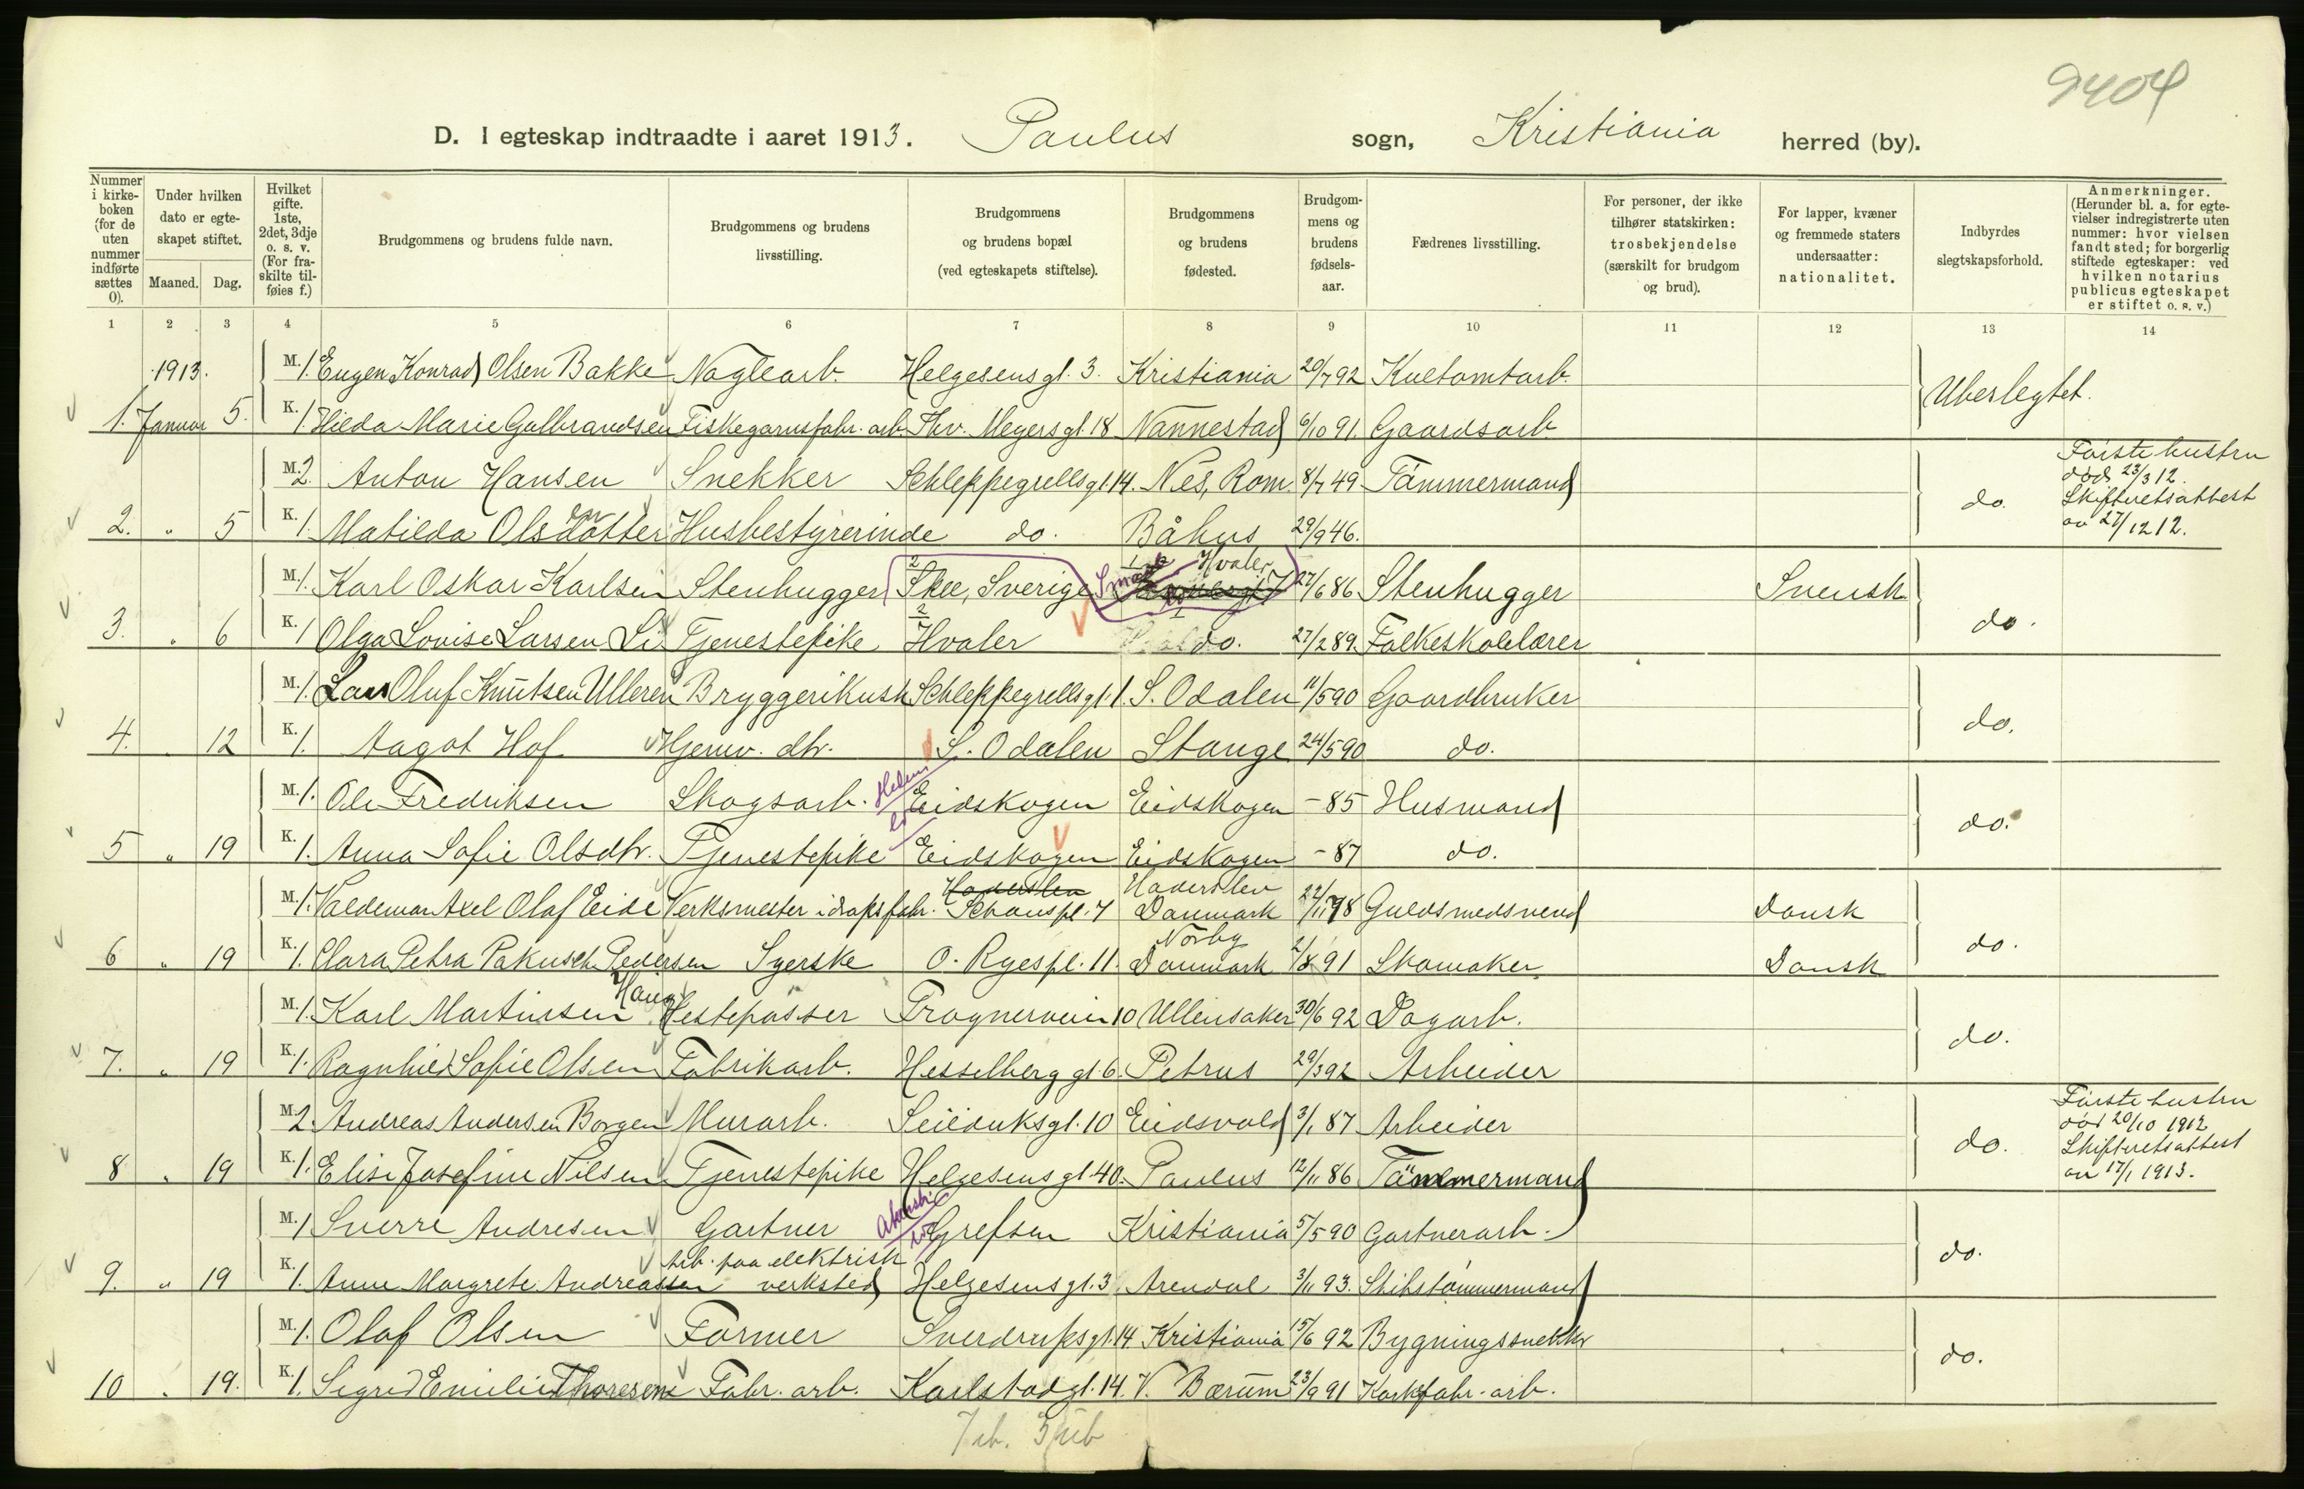 9404
D. I egteskap indtraadte i aaret 1913. Paulus sogn, Kristiania herred (by).
Nummer i kirkeboken (for de uten nummer indførte sættes 0).
Under hvilken dato er egteskapet stiftet.
Maaned. Dag.
Hvilket gifte. 1ste, 2det, 3dje o. s. v. (For fraskilte tilføies f.)
Brudgommens og brudens fulde navn.
Brudgommens og brudens livsstilling.
Brudgommens og brudens bopæl (ved egteskapets stiftelse).
Brudgommens og brudens fødested.
Brudgommens og brudens fødselsaar.
Fædrenes livsstilling.
For personer, der ikke tilhører statskirken: trosbekjendelse (særskilt for brudgom og brud).
For lapper, kvæner og fremmede staters undersaatter: nationalitet.
Indbyrdes slegtskapsforhold.
Anmerkninger. (Herunder bl. a. for egtevielser indregistrerte uten nummer: hvor vielsen fandt sted; for borgerlig stiftede egteskaper: ved hvilken notarius publicus egteskapet er stiftet o. s. v.)
1 2 3 4 5 6 7 8 9 10 11 12 13 14
1913. M. 1. Eugen Konrad Olsen Bakke Naglearb. Helgesensgt. 3. Kristiania 20/7 92 Kultomtarb. Ubeslegtet.
1. Januar 5. K. 1. Hilda Marie Gulbrandsen Fiskegarnsfabr. arb. Thv. Meyersgt. 18 Nannestad 6/10 91. Gaardsarb.
M. 2. Anton Hansen Snekker Schleppegrellsgt. 14. Nes, Rom. 8/7 49. Tømmermand do. Første hustru død 23/3 12. Skifteretsattest av 27/12 12.
2. " 5 K. 1. Matilda Olsdotter Husbestyrerinde do. Båhus 29/9 46.
M. 1. Karl Oskar Karlsen Stenhugger Skee, Sverige Hvaler 27/6 86 Stenhugger Svensk
3. " 6 K. 1 Olga Lovise Larsen Li Tjenestepike Hvaler do. 27/2 89. Folkeskolelærer do.
M. 1. Lars Oluf Knutsen Ulleren Bryggerikusk Schleppegrellsgt. 1. S. Odalen 11/5 90 Gaardbruker
4. " 12 K. 1. Aagot Hof Hjemv. dtr. S. Odalen Stange 24/5 90 do. do.
M. 1. Ole Fredriksen Skogsarb. Eidskogen Eidskogen - 85 Husmand
5 " 19 K. 1. Anna Sofie Olsdtr. Tjenestepike Eidskogen Eidskogen - 87 do. do.
M. 1. Valdemar Axel Olaf Eide Verksmester i dropsfabr. Haderslev Schouspl. 7 Haderslev Danmark 22/11 78 Guldsmedsvend Dansk
6 " 19 K. 1. Clara Petra Pakusch Pedersen Syerske O. Ryespl. 11. Nørby Danmark 2/8 91 Skomaker Dansk do.
M. 1. Karl Martinsen Haug Hestepasser Frognerveien 10 Ullensaker 30/6 92 Dagarb.
7. " 19 K. 1. Ragnhild Sofie Olsen Fabrikarb. Hesselberggt. 6. Petrus 29/3 92 Arbeider do.
M. 2. Andreas Andersen Borgen Murarb. Seilduksgt. 10 Eidsvold 3/1 87 Arbeider Første hustru død 20/10 1912 Skifteretsattest av 17/1 1913.
8 " 19 K. 1. Elise Josefine Nilsen Tjenestepike Helgesensgt. 40. Paulus 12/11 86 Tømmermand do.
M. 1 Sverre Andresen Gartner Grefsen Kristiania 5/5 90 Gartnerarb.
9. " 19 K. 1. Anne Margrete Andreassen Arb. paa elektrisk verksted Helgesensgt. 3 Arendal 3/11 93. Skibstømmermand do.
M. 1. Olaf Olsen Former Sverdrupsgt. 14 Kristiania 15/6 92 Bygningssnekker
10 " 19. K. 1. Sigrid Emilie Thoresen Fabr. arb. Karlstadgt. 14. V. Bærum 23/9 91 Korkfabr. arb. do.
7 ib. 3 ub